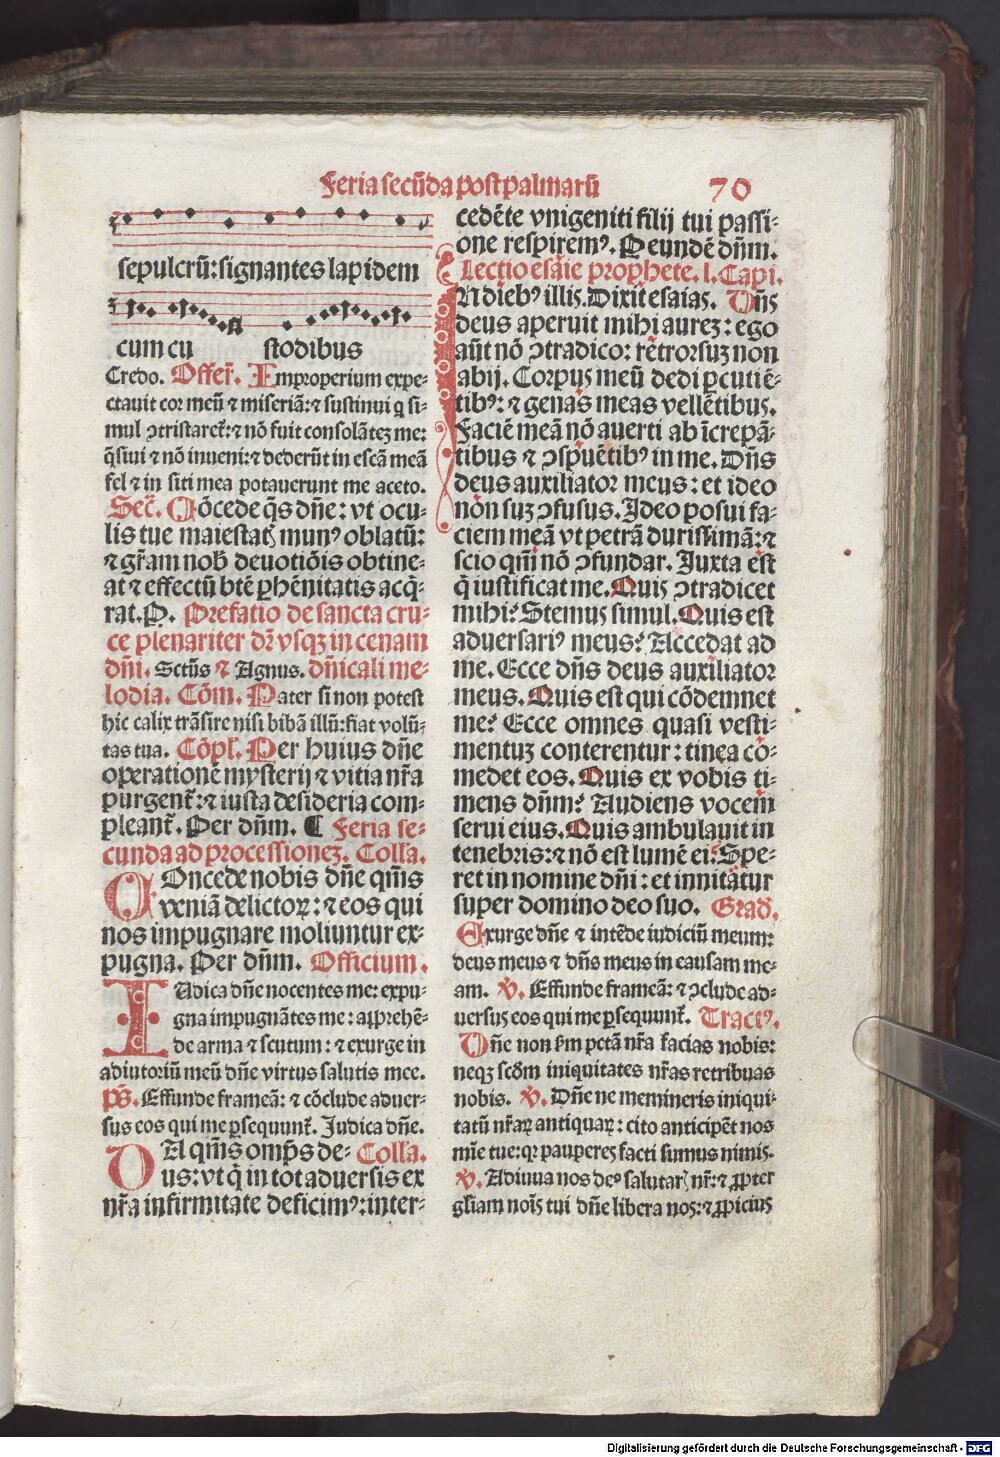 Feria secūda post palmarū 70
sepulcrū: signantes lapidem
cum cu stodibus
Credo. Offer̃. Improperium expe⸗
ctauit cor meū ⁊ miseriā: ⁊ sustinui q si⸗
mul ↄtristaret̃: ⁊ nō fuit consolātez me:
q̄siui ⁊ nō inueni: ⁊ dederūt in escā meā
fel ⁊ in siti mea potauerunt me aceto.
Sec̃. Cōcede q̄s dn̄e: vt ocu⸗
lis tue maiestatꝭ munꝰ oblatū:
⁊ gr̄am nob̄ deuotiōis obtine⸗
at ⁊ effectū bt̄e ꝑhēnitatis acq̄⸗
rat. P. Prefatio de sancta cru⸗
ce plenariter dr̄ vsqꝫ in cenam
dn̄i. Sctūs ⁊ Agnus. dn̄icali me⸗
lodia. Cōm. Pater si non potest
hic calix trāsire nisi bibā illū: fiat volū⸗
tas tua. Cōpl̄. Per huius dn̄e
operationē mysterij ⁊ vitia nr̄a
purgent̃: ⁊ iusta desideria com⸗
pleant̃. Per dn̄m. ¶ Feria se⸗
cunda ad processionez. Coll̄a.
COncede nobis dn̄e qm̄s
veniā delictoꝝ: ⁊ eos qui
nos impugnare moliuntur ex⸗
pugna. Per dn̄m. Officium.
IUdica dn̄e nocentes me: expu⸗
gna impugnātes me: apprehē⸗
de arma ⁊ scutum: ⁊ exurge in
adiutoriū meū dn̄e virtus salutis mee.
ps̄. Effunde frameā: ⁊ cōclude aduer⸗
sus eos qui me ꝑsequunt̃. Judica dn̄e.
DA qm̄s omp̄s de⸗ Coll̄a.
us: vt q̄ in tot aduersis ex
nr̄a infirmitate deficimꝰ: inter⸗
cedēte vnigeniti filij tui passi⸗
one respiremꝰ. P eundē dn̄m.
Lectio esaie prophete. l. Capi.
IN diebꝰ illis. Dixit esaias. Dn̄s
deus aperuit mihi aurez: ego
aūt nō ↄtradico: retrorsuz non
abij. Corpus meū dedi ꝑcutiē⸗
tibꝰ: ⁊ genas meas vellētibus.
Faciē meā nō auerti ab īcrepā⸗
tibus ⁊ ↄspuētibꝰ in me. Dn̄s
deus auxiliator meus: et ideo
non suz ↄfusus. Ideo posui fa⸗
ciem meā vt petrā durissimā: ⁊
scio qm̄ nō ↄfundar. Juxta est
q̄ iustificat me. Quis ↄtradicet
mihi? Stemus simul. Quis est
aduersariꝰ meus? Accedat ad
me. Ecce dn̄s deus auxiliator
meus. Quis est qui cōdemnet
me? Ecce omnes quasi vesti⸗
mentuz conterentur: tinea co⸗
medet eos. Quis ex vobis ti⸗
mens dn̄m? Audiens vocem
serui eius. Quis ambulauit in
tenebris: ⁊ nō est lumē ei: Spe⸗
ret in nomine dn̄i: et innitatur
super domino deo suo. Grad̄.
Exurge dn̄e ⁊ intēde iudiciū meum:
deus meus ⁊ dn̄s meus in causam me⸗
am. ℣. Effunde frameā: ⁊ ↄclude ad⸗
uersus eos qui me ꝑsequunt̃. Tractꝰ.
Dn̄e non s̄m pctā nr̄a facias nobis:
neqꝫ scd̄m iniquitates nr̄as retribuas
nobis. ℣. Dn̄e ne memineris iniqui⸗
tatū nr̄aꝝ antiquaꝝ: cito anticipēt nos
mīe tue: qꝛ pauperes facti sumus nimis.
℣. Adiuua nos deꝰ salutarꝭ nr̄: ⁊ ꝓpter
gl̄iam noīs tui dn̄e libera nos: ⁊ ꝓpicius
Digitalisierung gefördert durch die Deutsche Forschungsgemeinschaft - DFG